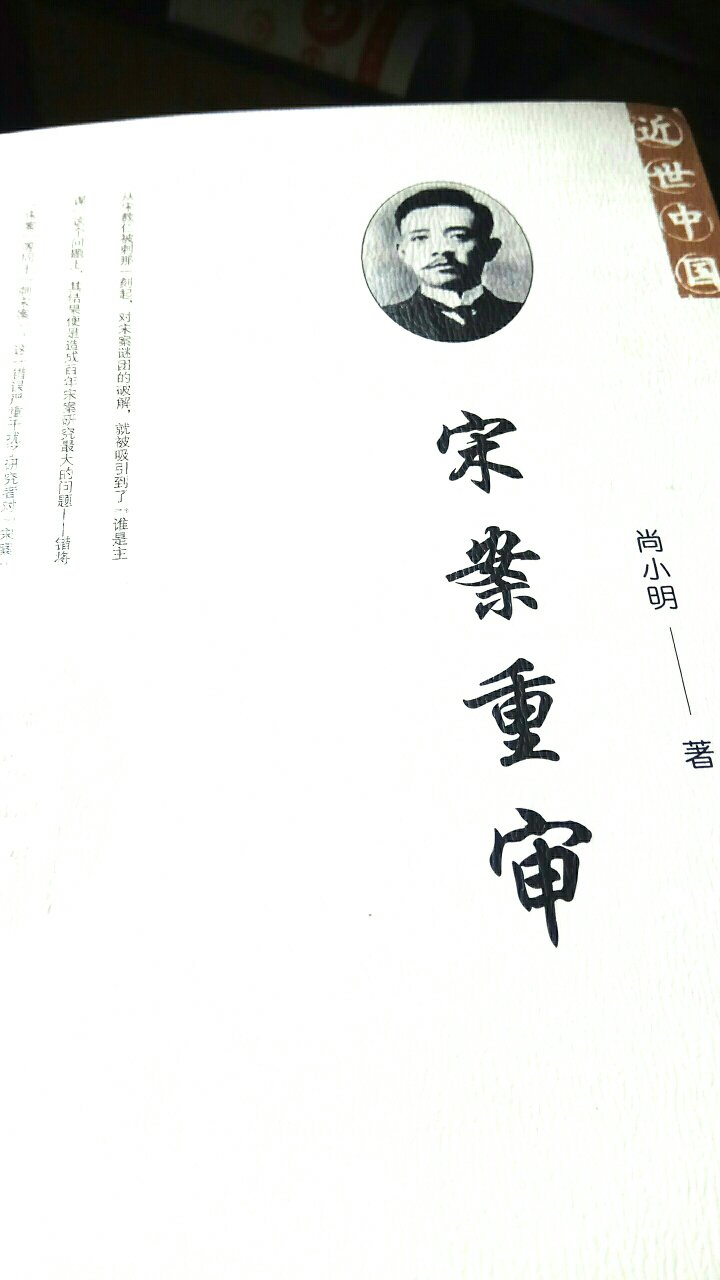 近世中国
尚小明——著
宋案重审
从宋教仁被刺那一刻起,对宋案谜团的破解,就被吸引到了“谁是主
谋”这个问题上,其结果便是造成百年宋案研究最大的问题——错将
这一错误严重干扰了研究者对“宋案”